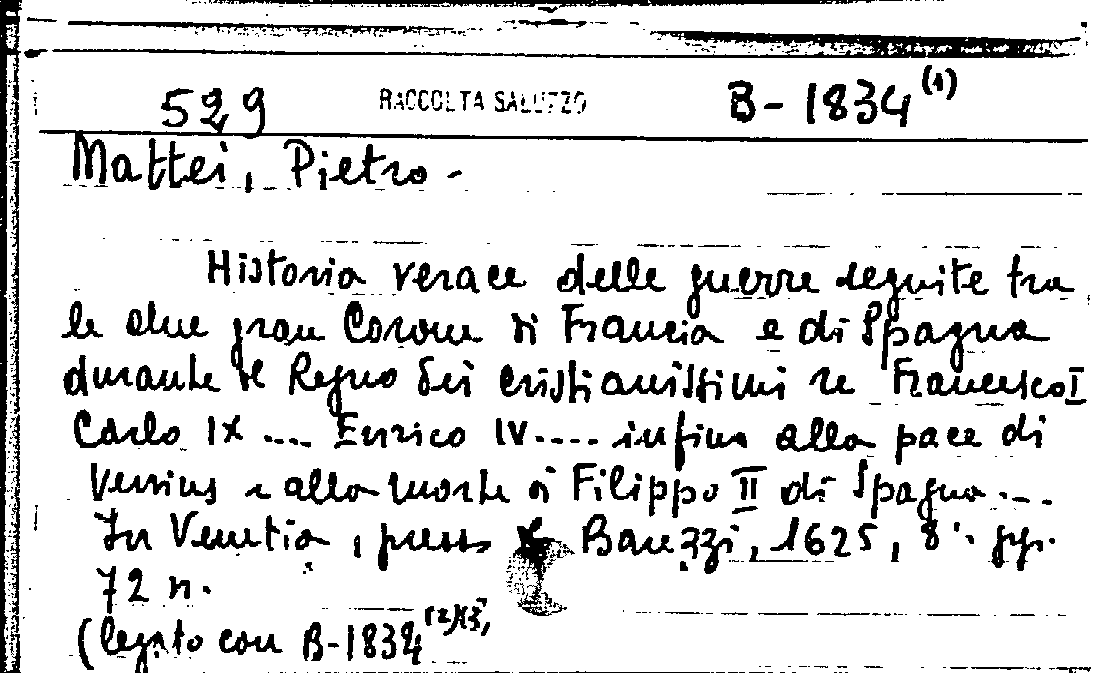 529 RACCOLTA SALUZZO B-1834(1)
Mattei, Pietro -
Historia verace delle guerre seguite tra
le due gran Corone di Francia e di Spagna
durante il Regno dei cristianissimi re Francesco I
Carlo IX .... Enrico IV.... infino alla pace di
Vervins e alla morte di Filippo II di Spagna....
In Venetia, presso Barezzi, 1625, 8°. pp.
72 n.
(legato con B-1834(2)(3)